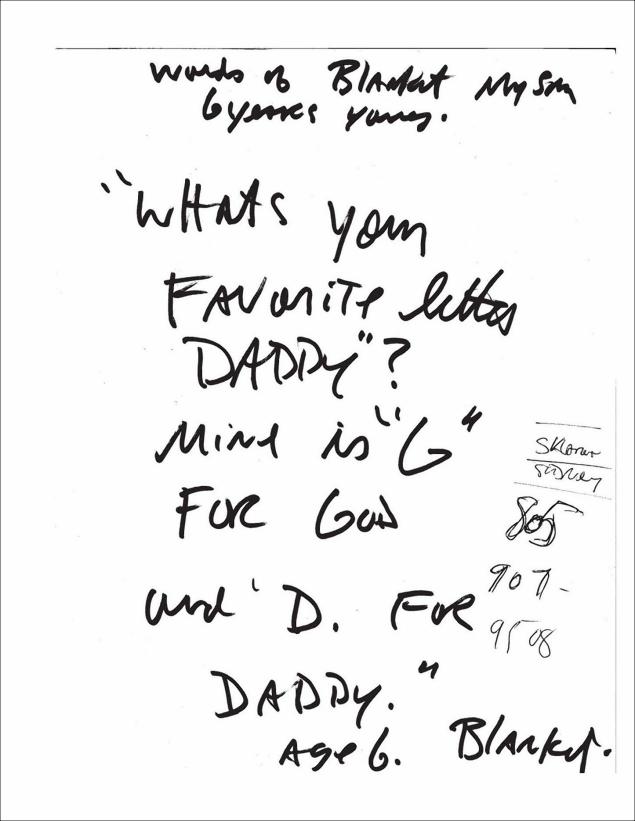 Words of Blanket My Son
6 years young.
"WHATS YOUR
FAVORITE letter
DADDY"?
Mine is "G"
FOR GOD
and 'D. FOR
DADDY."
Age 6. Blanket.
805
907-
9508